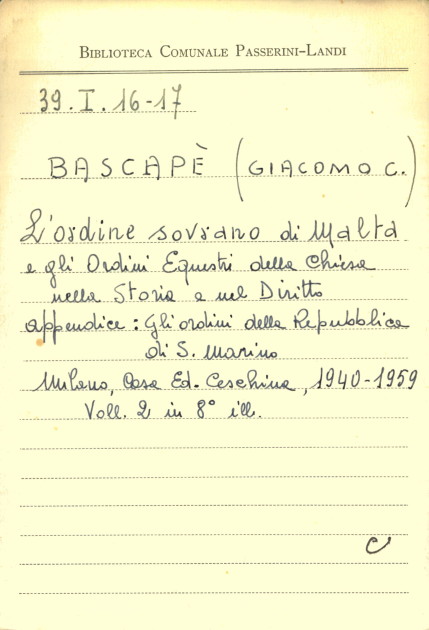 BIBLIOTECA COMUNALE PASSERINI-LANDI
39. I. 16-17
BASCAPÈ (GIACOMO C.)
L'ordine sovrano di Malta
e gli Ordini Equestri della Chiesa
nella Storia e nel Diritto
appendice: Gli ordini della Repubblica
di S. Marino
Milano, Casa Ed. Ceschina, 1940-1959
Voll. 2 in 8° ill.
C